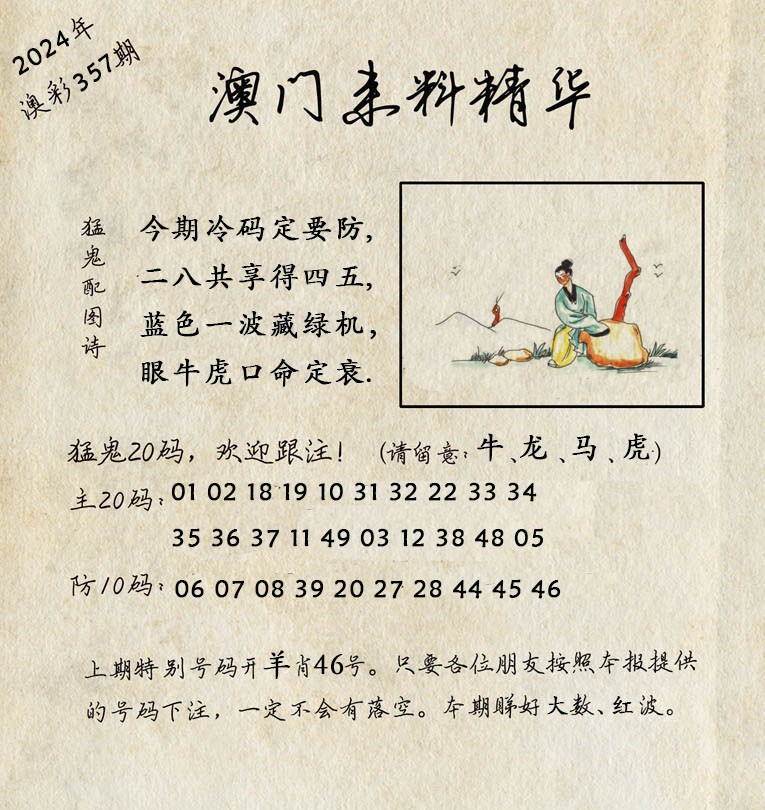 2024年
澳彩357期
澳门来料精华
猛鬼配图诗
今期冷码定要防,
二八共享得四五,
蓝色一波藏绿机,
眼牛虎口命定衰.
猛鬼20码，欢迎跟注！（请留意：牛、龙、马、虎）
主20码：01 02 18 19 10 31 32 22 33 34
35 36 37 11 49 03 12 38 48 05
防10码：06 07 08 39 20 27 28 44 45 46
上期特别号码开羊肖46号。只要各位朋友按照本报提供
的号码下注，一定不会有落空。本期睇好大数、红波。